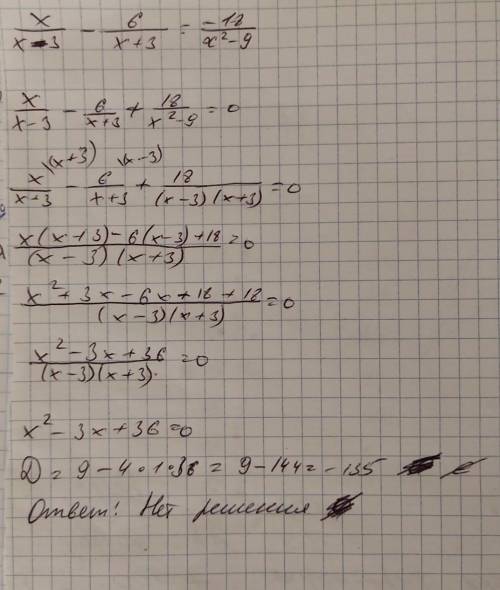 x/(x-3) - 6/(x+3) = -18/(x²-9)
x/(x-3) - 6/(x+3) + 18/(x²-9) = 0
x\(x+3)/(x+3) - 6\(x-3)/(x+3) + 18/((x-3)(x+3)) = 0
(x(x+3)-6(x-3)+18)/((x-3)(x+3)) = 0
(x²+3x-6x+18+18)/((x-3)(x+3)) = 0
(x²-3x+36)/((x-3)(x+3)) = 0
x²-3x+36=0
D = 9-4·1·36 = 9-144 = -135
Ответ: Нет решения